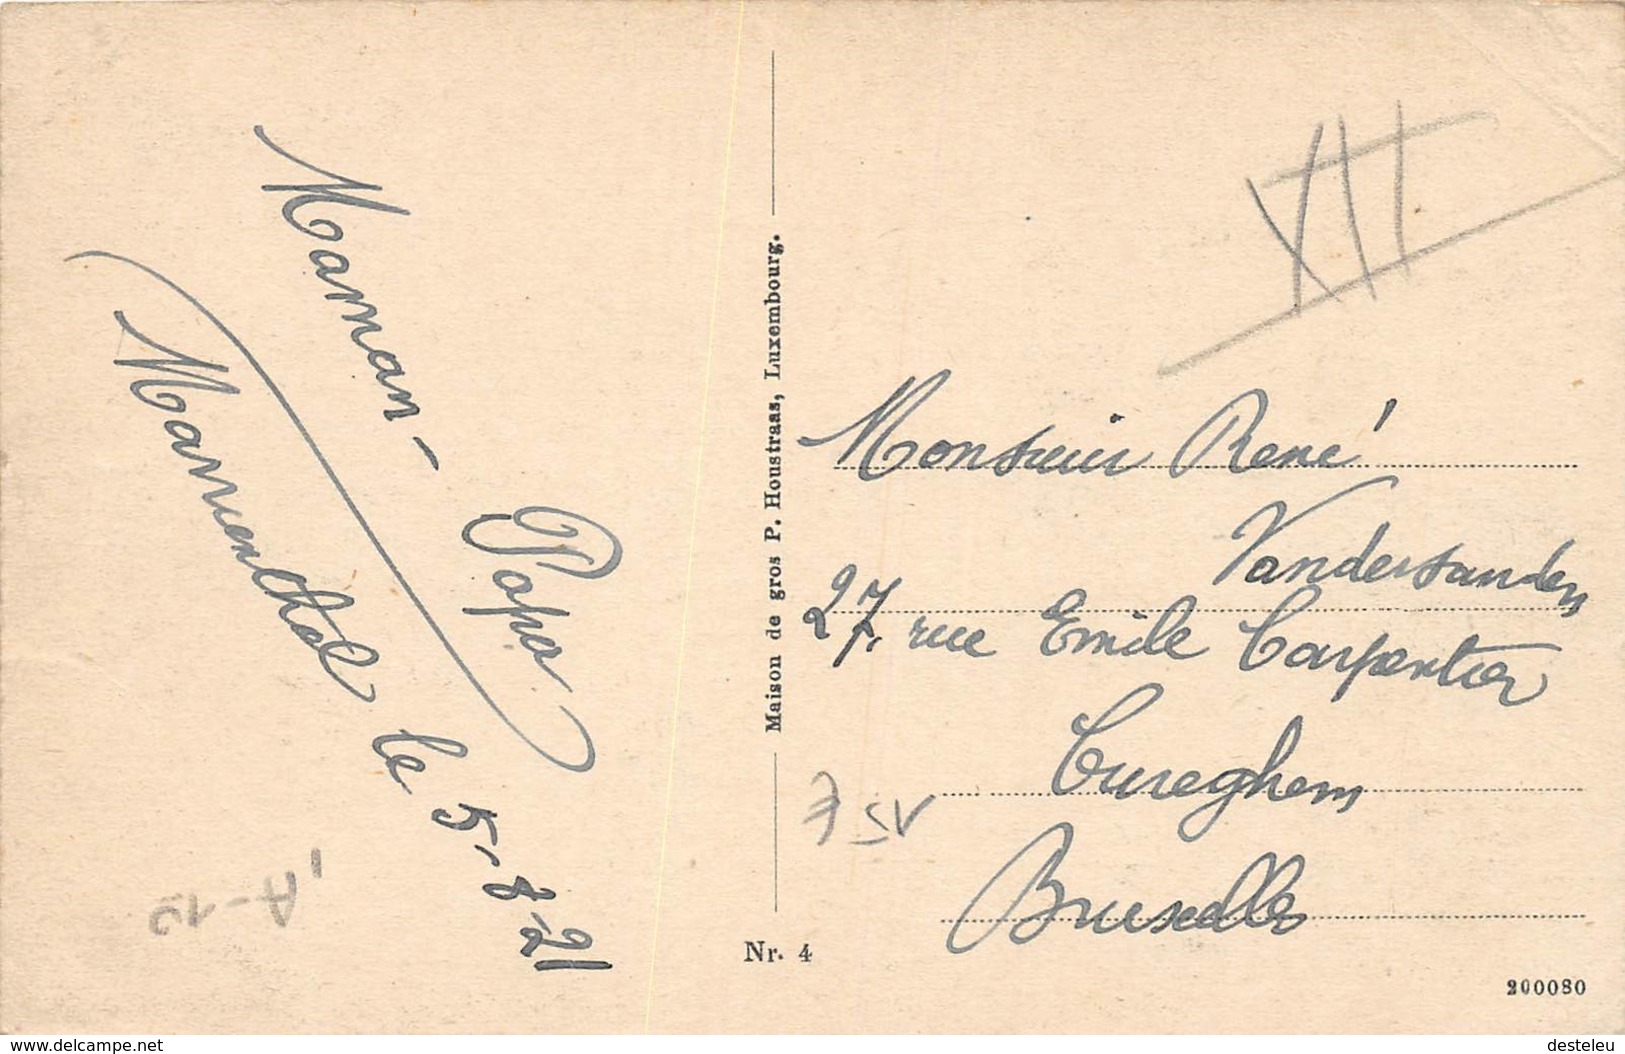 Maman - Papa
Mamenthal le 5-8-21
Maison de gros P. Houstraas, Luxembourg.
Nr. 4
XII
Monsieur René
Vandersanden
27, rue Emile Carpentier
Cureghem
Bruxelles
200080
www.delcampe.net
desteleu